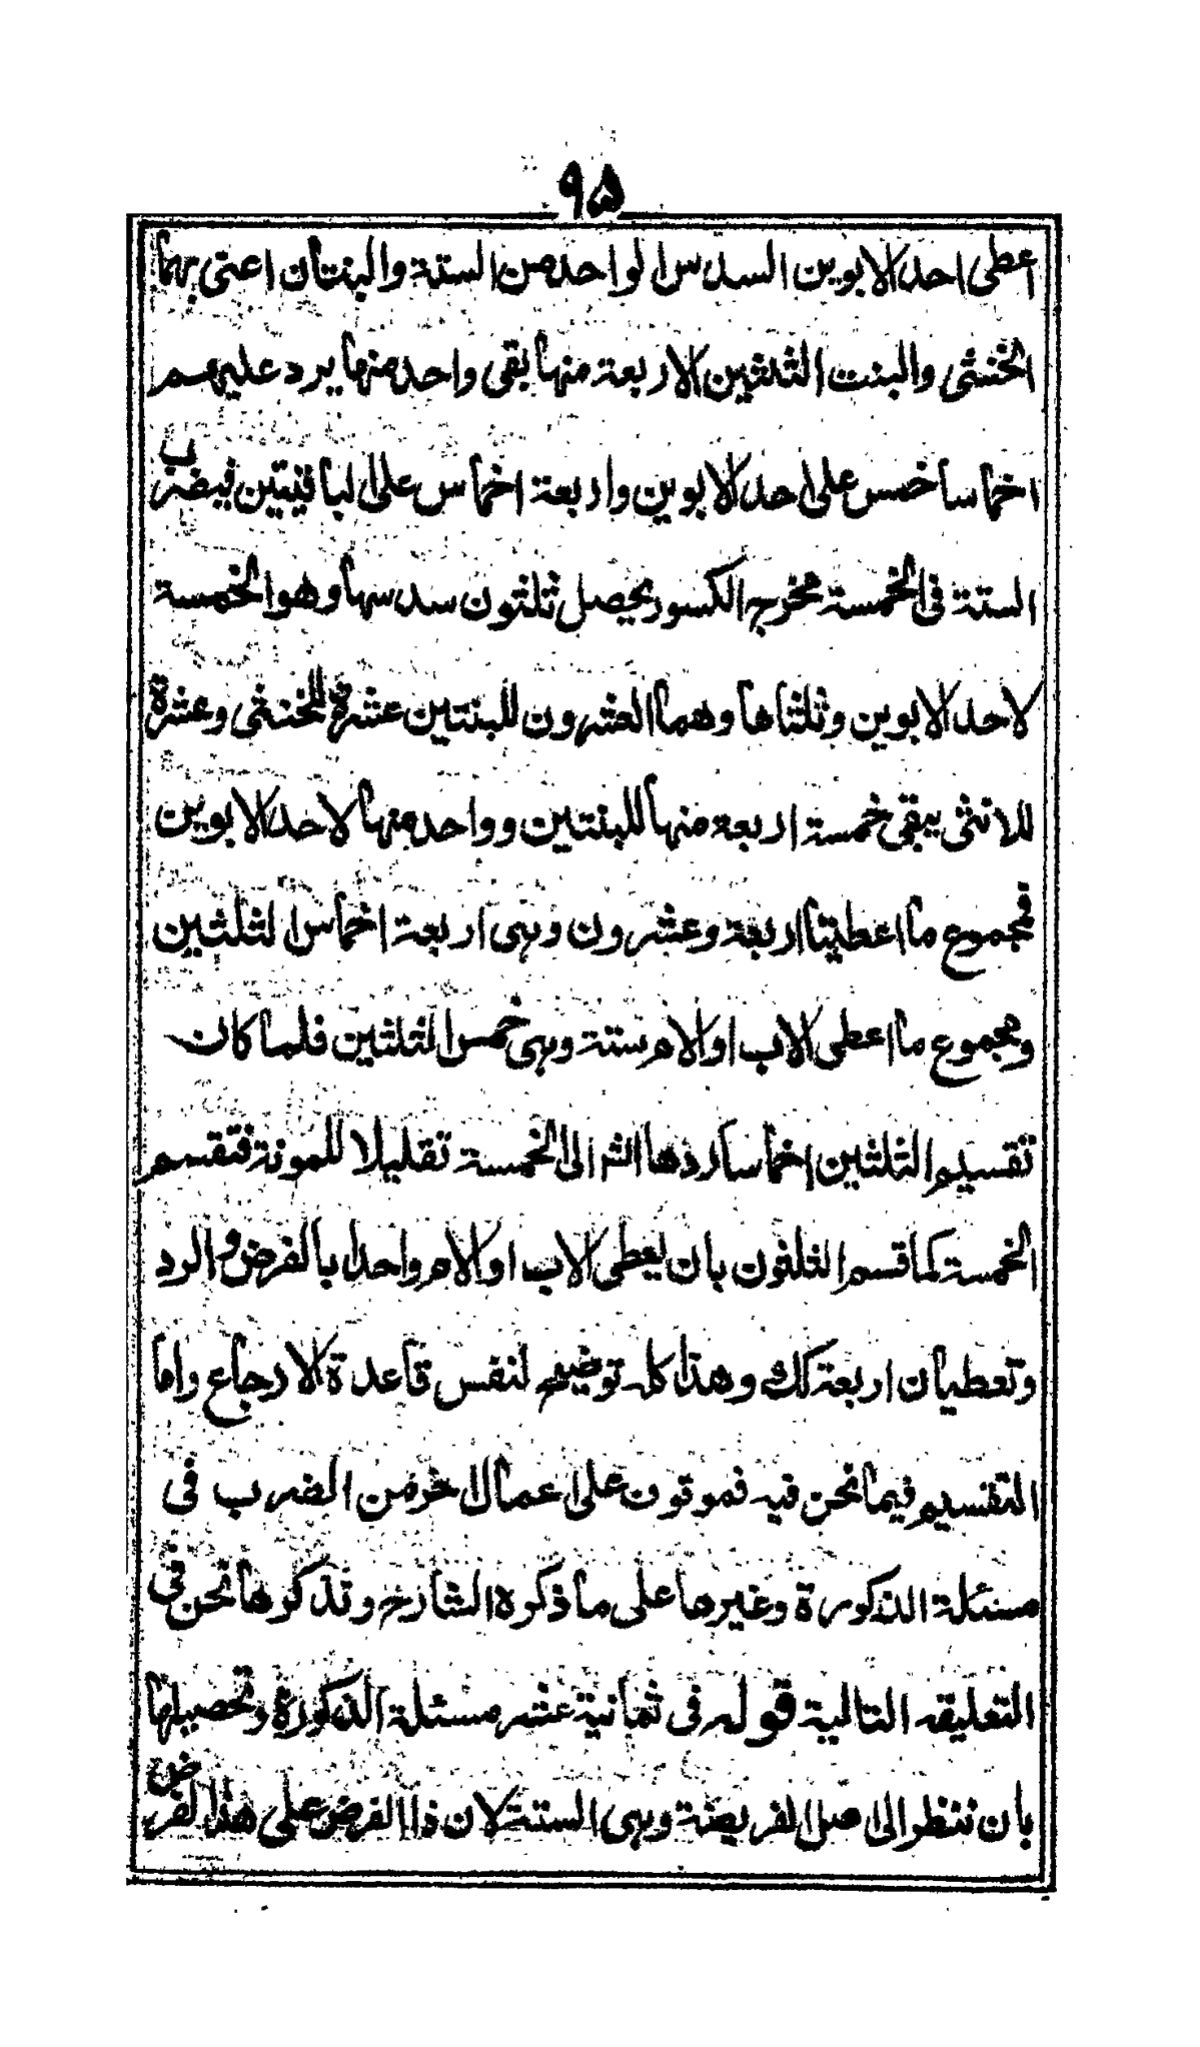 ۹۵
اعطى احد الابوين السدس الواحد من الستة والبنتان اعنى بهما
الخنثى والبنت الثلثين الاربعة منها بقى واحد منها يرد عليهم
اخماسا خمس على احد الابوين واربعة اخماس على الباقيتين فيضرب
الستة فى الخمسة مخرج الكسور يحصل ثلثون سدسها وهو الخمسة
لاحد الابوين وثلثاها وهما العشرون للبنتين عشرة للخنثى وعشرة
للانثى يبقى خمسة اربعة منها للبنتين وواحد منها لاحد الابوين
فمجموع ما اعطيتا اربعة وعشرون وهى اربعة اخماس الثلثين
ومجموع ما اعطى الاب او الام ستة وهى خمس الثلثين فلما كان
تقسيم الثلثين اخماسا ردها الشر الى الخمسة تقليلا للمونة فتقسم
الخمسة كما قسم الثلثون بان يعطى الاب او الام واحدا بالفرض والرد
وتعطيان اربعة كك وهذا كله توضيح لنفس قاعدة الارجاع واما
التقسيم فيما نحن فيه فموقون على اعمال اخر من الضرب فى
مسئلة الذكورة وغيرها على ما ذكره الشارح وتذكرها نحن فى
التعليقه التالية قوله فى ثمانية عشر مسئلة الذكورة وتحصيلها
بان ننظر الى اصل الفريضة وهى الستة لان ذا الفرض على هذا الفرض